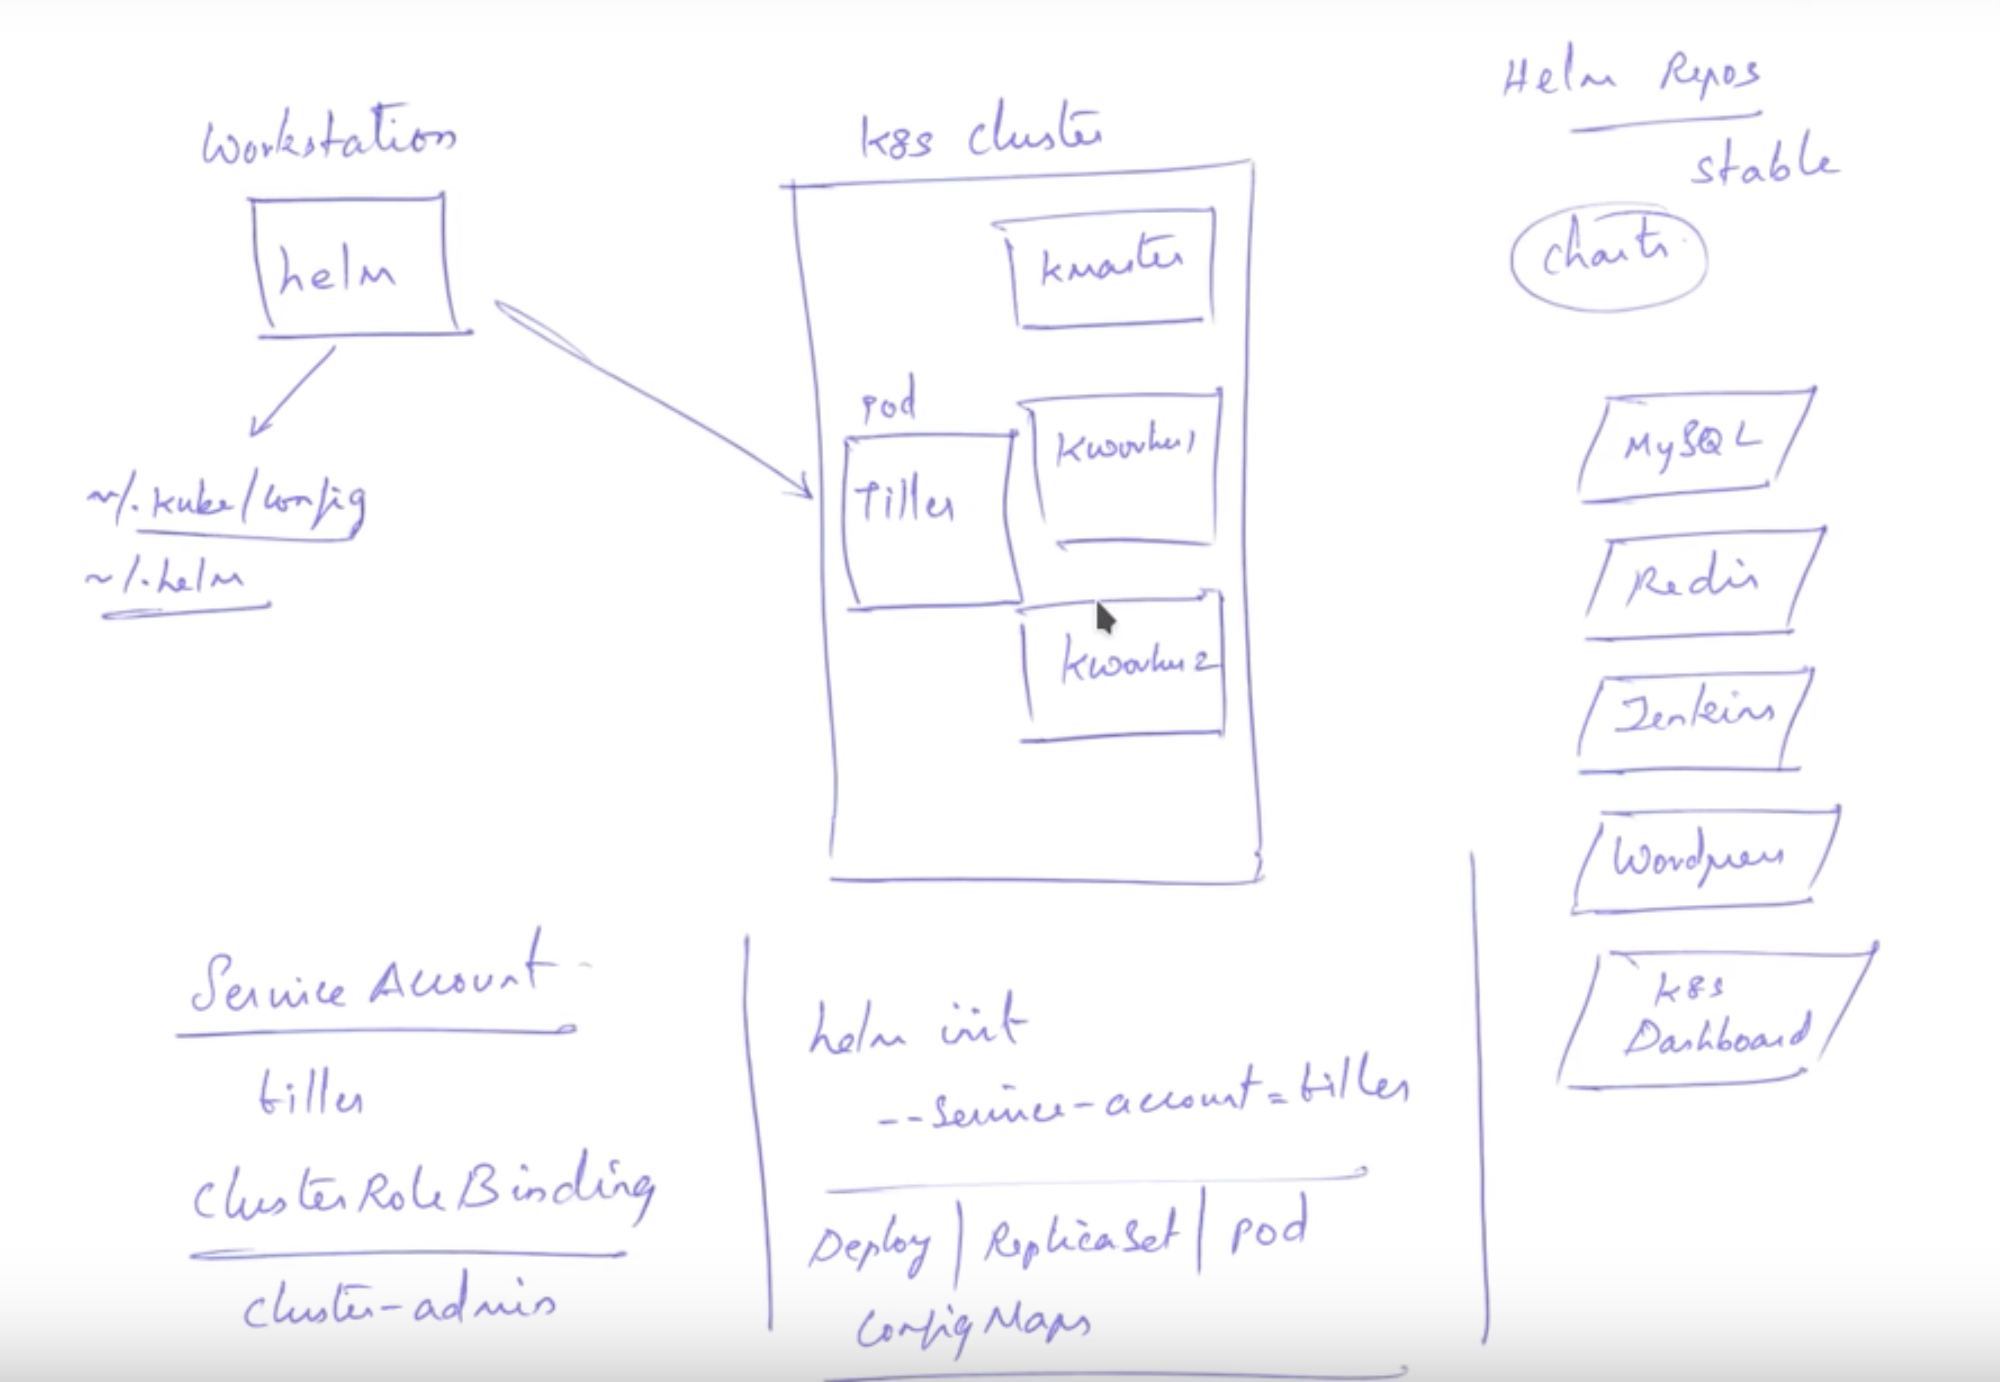 Workstation
helm
~/.kube/config
~/.helm
k8s cluster
kmaster
pod
Tiller
kworker1
kworker2
Helm Repos
stable
charts
MySQL
Redis
Jenkins
Wordpress
k8s
Dashboard
Service Account
tiller
ClusterRoleBinding
cluster-admin
helm init
--service-account=tiller
Deploy | ReplicaSet | pod
ConfigMaps